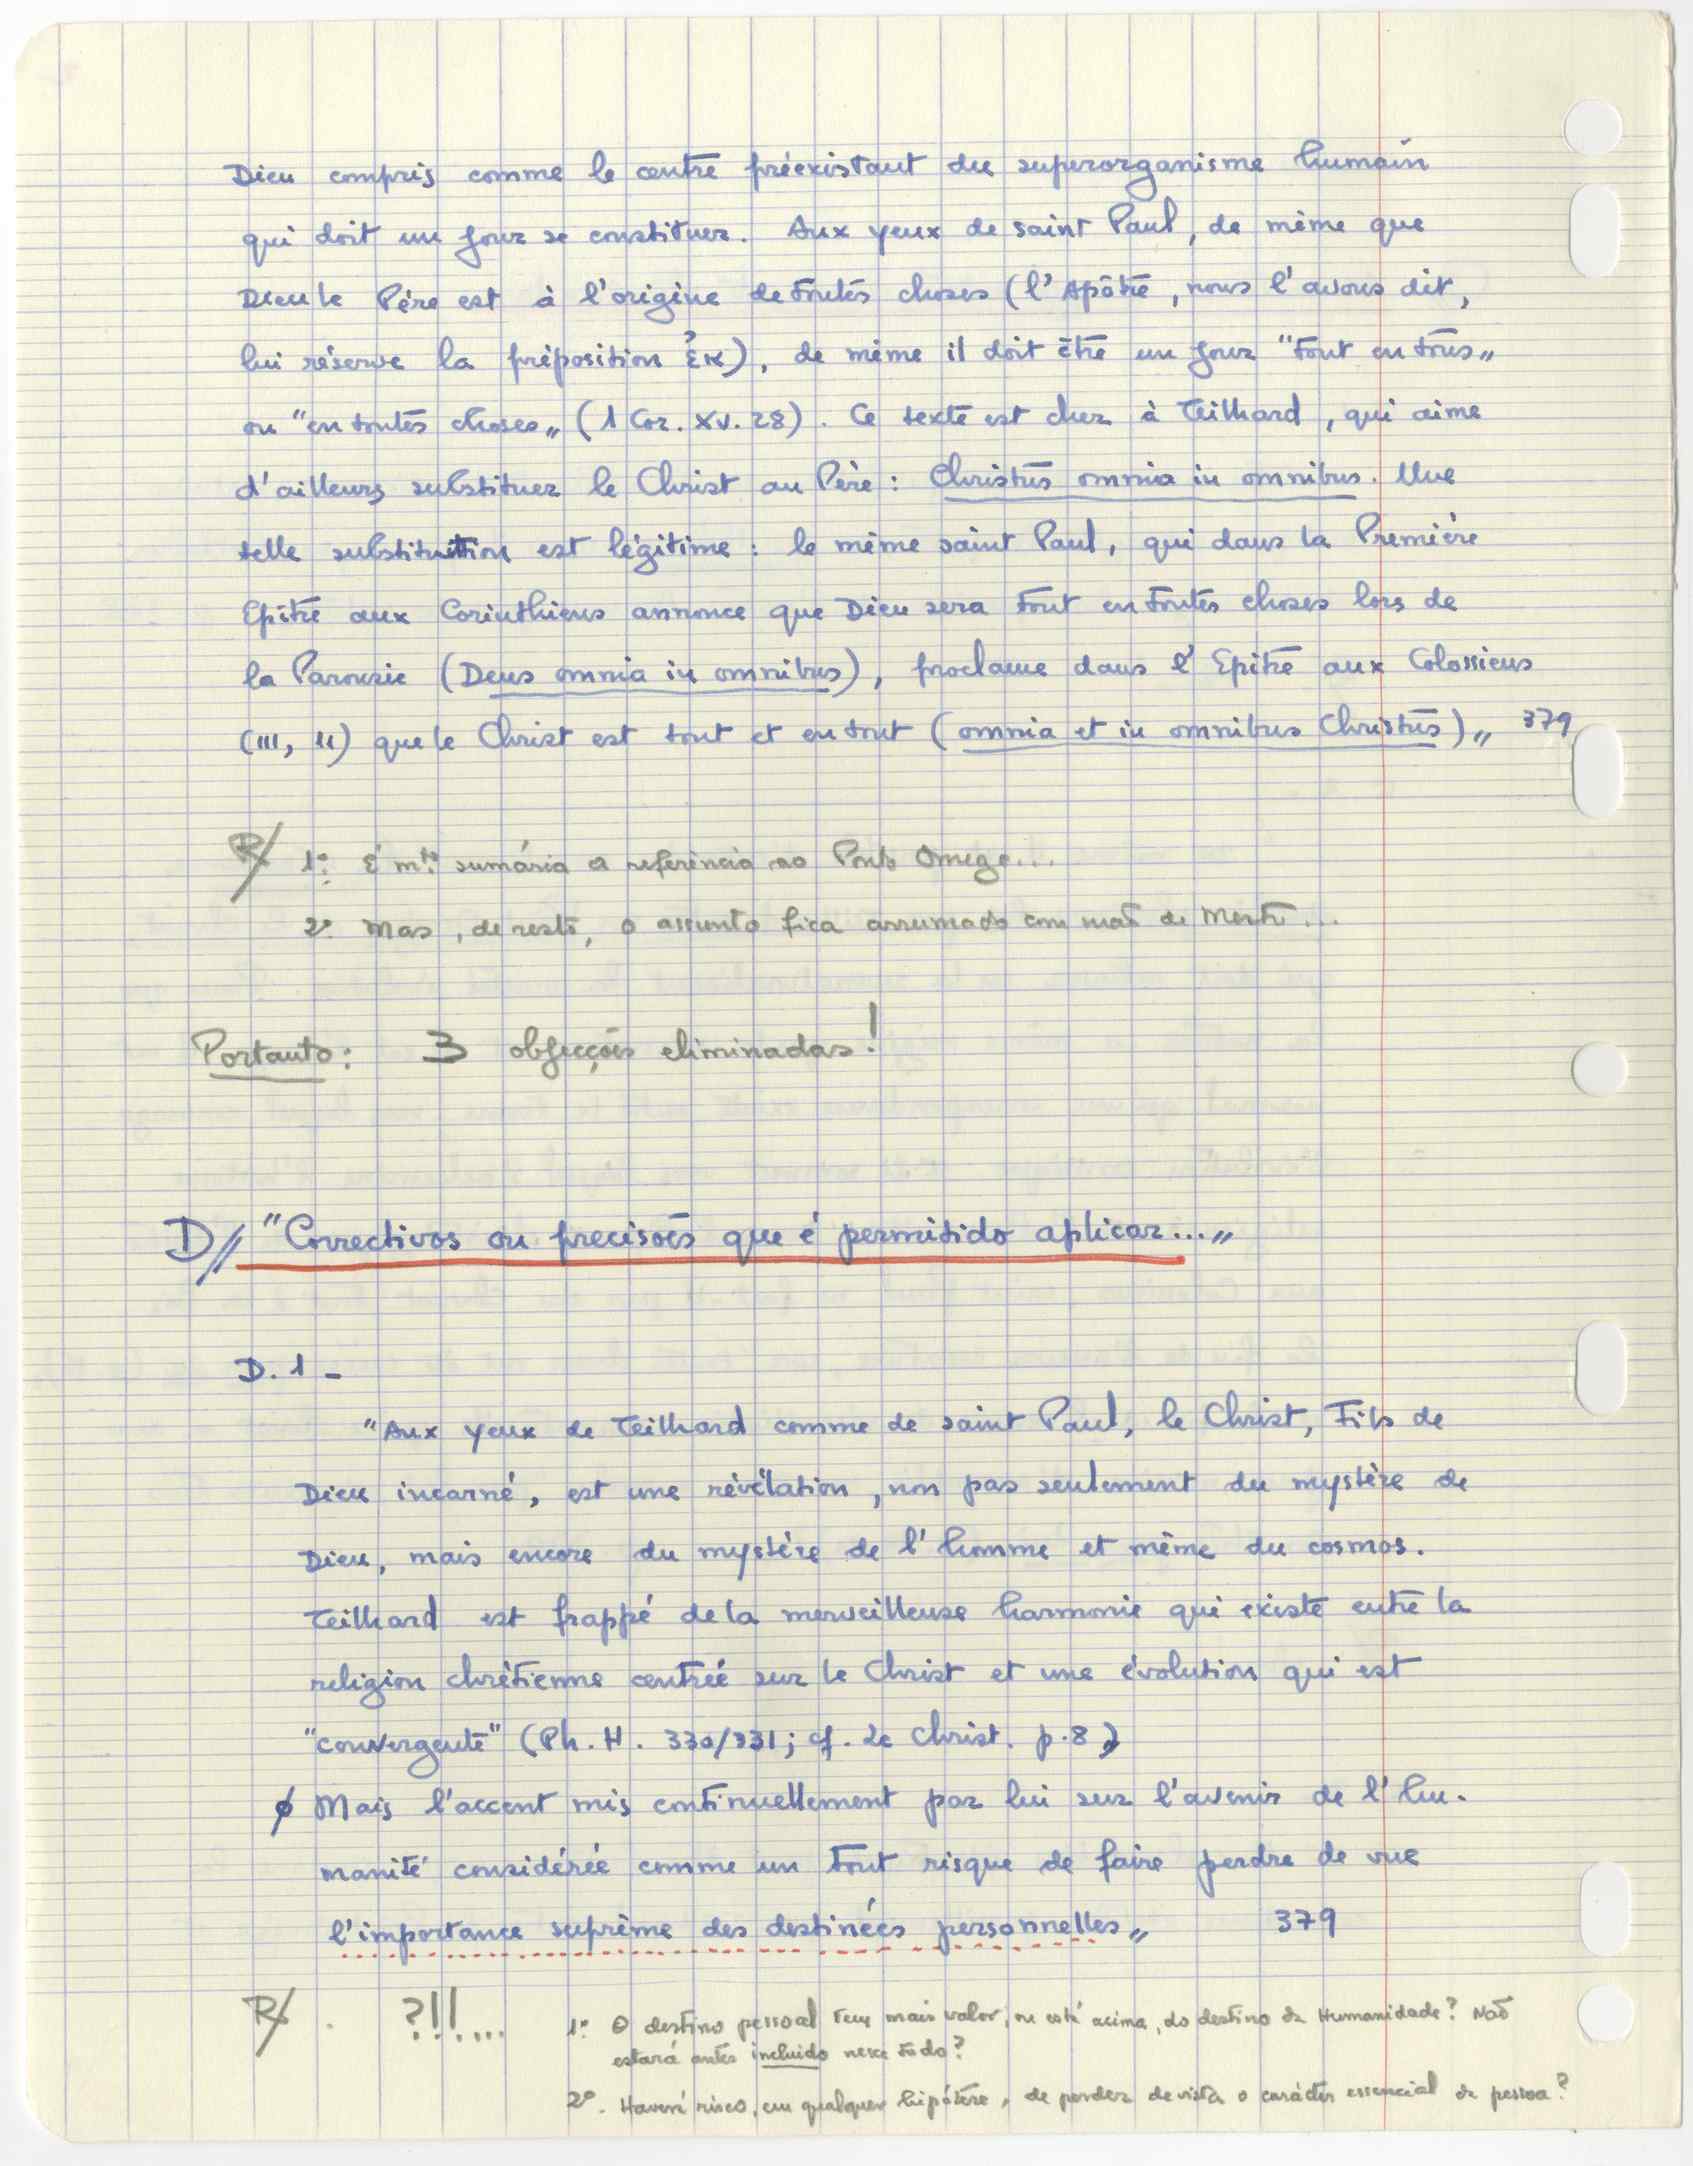 Dieu compris comme le centre préexistant du superorganisme humain
qui doit un jour se constituer. Aux yeux de saint Paul, de même que
Dieu le Père est à l'origine de toutes choses (l'Apôtre, nous l'avons dit,
lui réserve la préposition ἐκ), de même il doit être un jour "tout en tous„
ou "en toutes choses„ (1 Cor. XV. 28). Ce texte est cher à Teilhard, qui aime
d'ailleurs substituer le Christ au Père : Christus omnia in omnibus. Une
telle substitution est légitime : le même saint Paul, qui dans la Première
Epitre aux Corinthiens annonce que Dieu sera tout en toutes choses lors de
la Parousie (Deus omnia in omnibus), proclame dans l'Epitre aux Colossiens
(III, 11) que le Christ est tout et en tout (omnia et in omnibus Christus)„ 379
R/ 1º: É mtº sumária a referência ao Ponto Omega...
2º. Mas, de resto, o assunto fica arrumado com mão de Mestre...
Portanto: 3 objecções eliminadas!
D// "Correctivos ou precisões que é permitido aplicar...„
D. 1 -
"Aux yeux de Teilhard comme de saint Paul, le Christ, Fils de
Dieu incarné, est une révélation, non pas seulement du mystère de
Dieu, mais encore du mystère de l'homme et même du cosmos.
Teilhard est frappé de la merveilleuse harmonie qui existe entre la
religion chrétienne centrée sur le Christ et une évolution qui est
"convergente" (Ph. H. 330/331; cf. Le Christ. p. 8)
Mais l'accent mis continuellement par lui sur l'avenir de l'hu-
manité considérée comme un tout risque de faire perdre de vue
l'importance suprême des destinées personnelles„ 379
R/. ?!!... 1º: O destino pessoal tem mais valor, ou está acima, do destino da Humanidade? Não
estará antes incluido nesse todo?
2º. Haverá risco, em qualquer hipótese, de perder de vista o carácter essencial da pessoa?